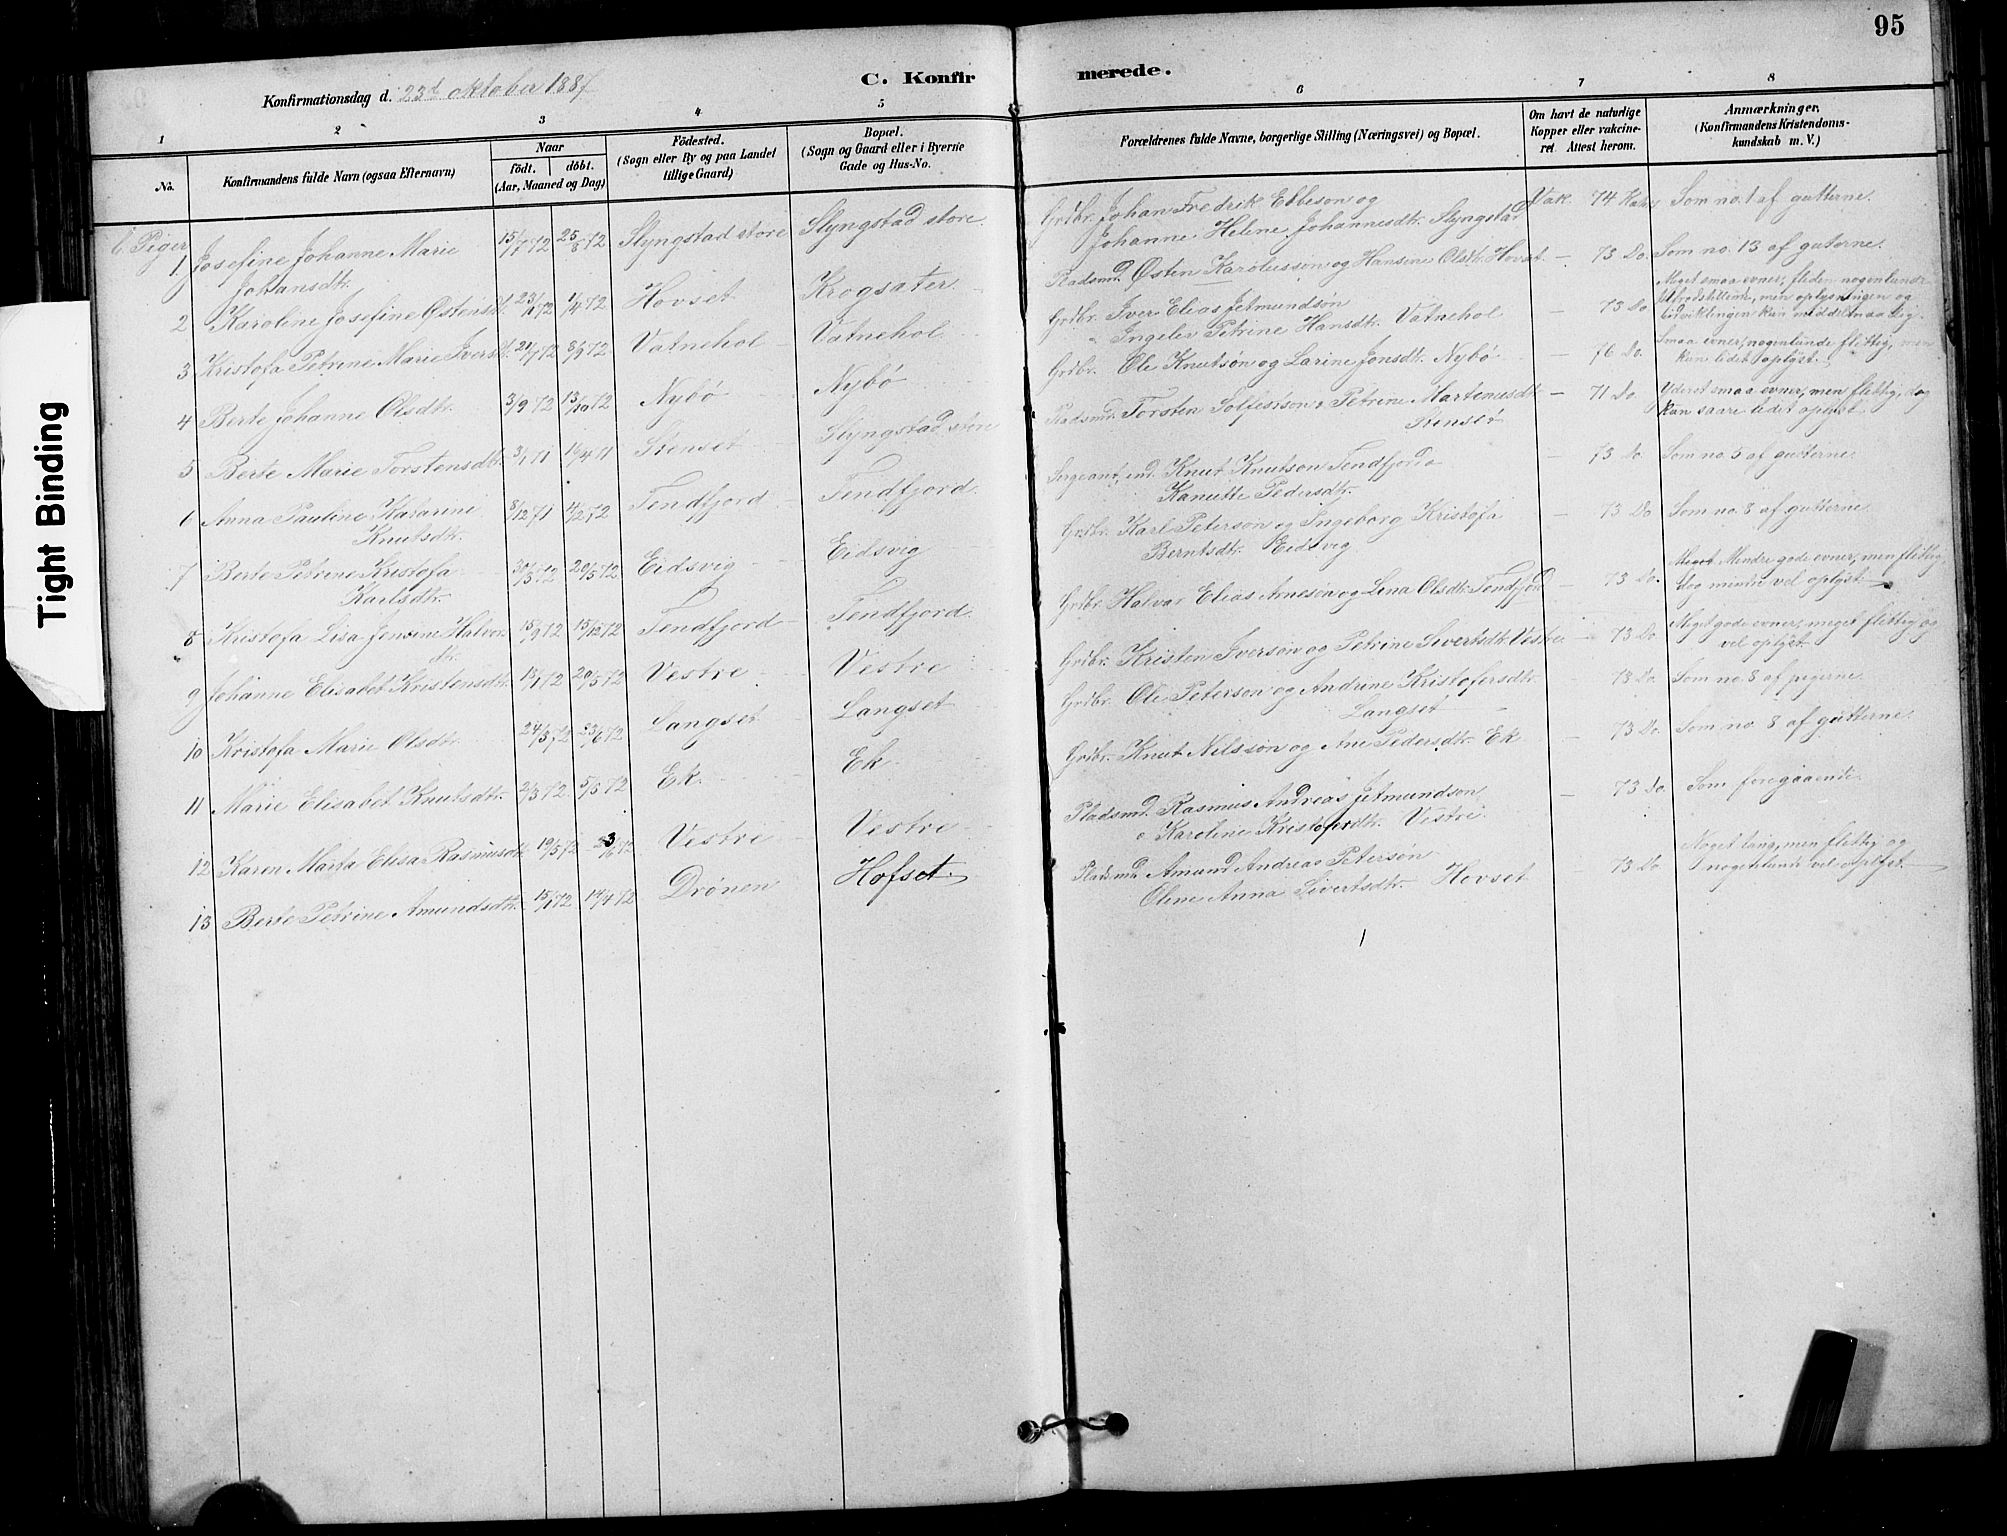 95
C. Konfirmerede.
Konfirmationsdag d. 23de Oktober 1887
1 2 3 4 5 6 7 8
No.
Konfirmandens fulde Navn (ogsaa Efternavn)
Naar
födt. döbt.
(Aar, Maaned og Dag)
Födested.
(Sogn eller By og paa Landet
tillige Gaard)
Bopæl.
(Sogn og Gaard eller i Byerne
Gade og Hus-No.
Forældrenes fulde Navne, borgerlige Stilling (Næringsvei) og Bopæl.
Om havt de naturlige
Kopper eller vakcine-
ret Attest herom.
Anmærkninger.
(Konfirmandens Kristendoms-
kundskab m. V.)
Piger
1 Josefine Johanne Marie 15/7 72 25/8 72 Slyngstad store Slyngstad store Grdbr. Johan Fredrik Ebbeson og Vak. 74 Som no. 1 af gutterne.
Johansdtr. Johanne Helene Johannesdtr. Slyngstad
2 Karoline Josefine Østensdt. 23/1 72 1/4 72 Hovset Krogsæter Pladsmd. Østen Karolusson og Hansine Olsdtr. Hovset – 73 Do. Som no. 13 af guterne.
3 Kristofa Petrine Marie Iversdt. 21/7 72 8/9 72 Vatnehol Vatnehol Grdbr. Iver Elias Jetmundsøn – 73 Do. Meget smaa evner, fliden nogenlunde
Ingelev Petrine Hansdtr. Vatnehol tilfredstillende, men oplysningen og
udviklingen kun middelmaadig.
4 Berte Johanne Olsdtr. 3/9 72 13/10 72 Nybø Nybø Grdbr. Ole Knutsøn og Larine Jonsdtr. Nybø – 76 Do. Smaa evner, nogenlunde flittig, men
kun lidet oplyst.
5 Berte Marie Torstensdtr. 3/1 71 16/4 71 Stenset Slyngstad store Pladsmd. Torsten Solfestsøn, Petrine Martenusdtr. – 71 Do. Yderst smaa evner, men flittig, dog
kun saare lidet oplyst.
6 Anna Pauline Katarine 8/12 71 4/2 72 Tendfjord Tendfjord Sergeant, Knut Knutson Tendfjord o – 73 Do. Som no. 5 af gutterne.
Knutsdtr. Kanutte Pedersdtr.
7 Berte Petrine Kristofa 30/3 72 20/5 72 Eidsvig Eidsvig Grdbr. Karl Peterson og Ingeborg Kristofa – 73 Do Som no. 8 af gutterne
Karlsdtr. Berntsdtr. Eidsvig
8 Kristofa Lisa Jensine Halvor- 15/9 72 15/12 72 Tendfjord Tendfjord Grdbr. Halvar Elias Arneson og Lina Olsdtr. Tendfjord – 73 Do. Meget Mindre gode evner, men flittig,
dtr. dog mindre vel oplyst.
9 Johanne Elisabet Kristensdtr. 13/1 72 20/5 72 Vestre Vestre Grdbr. Kristen Iverson og Petrine Sivertsdtr. Vestre – 73 Do Meget gode evner, meget flittig og
vel oplyst.
10 Kristofa Marie Olsdtr. 24/3 72 23/6 72 Langset Langset Grdbr. Ole Peterson og Andrine Kristofersdtr. – 73 Do. Som no. 8 af pigerne.
Langset
11 Marie Elisabet Knutsdtr. 2/3 72 5/5 72 Ek Ek Grdbr. Knut Nilsson og Ane Pedersdtr. Ek – 73 Do. Som no. 8 af gutterne.
12 Karen Marta Elisa Rasmusdt. 19/5 72 23/6 72 Vestre Vestre Pladsmd. Rasmus Andreas Jetmundson – 73 Do. Som foregaaende.
o Karoline Kristoferdtr. Vestre
13 Berte Petrine Amundsdtr. 15/1 72 14/4 72 Drönen Hofset. Pladsmd. Amund Andreas Petersøn 73 Do Noget lang, men flittig og
Oline Anna Sivertsdtr. Hovset nogetlunde vel oplyst
Tight Binding